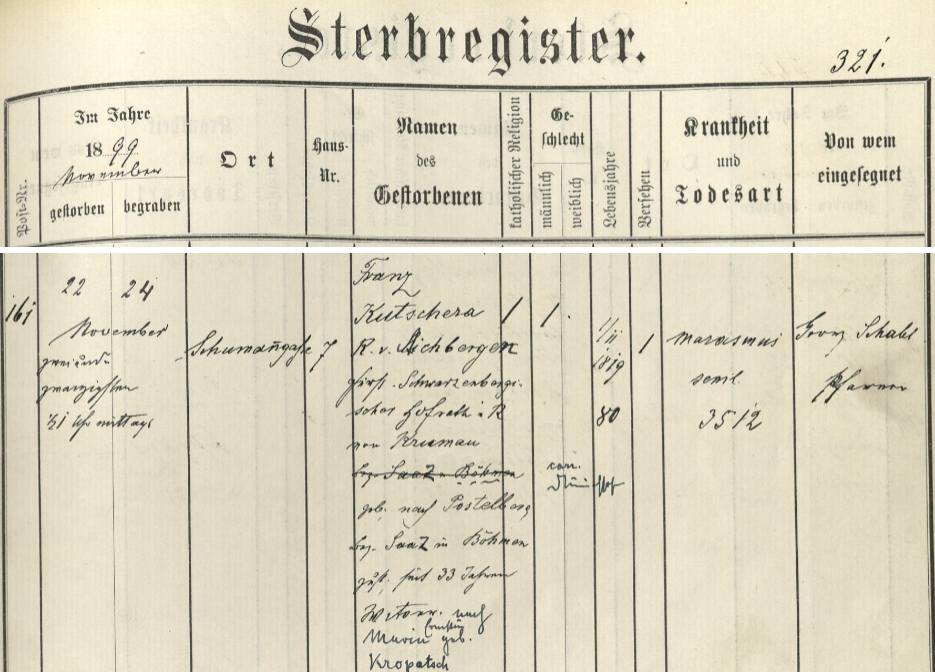 Sterbregister.
321.
Post-Nr.
Im Jahre
1899
November
gestorben
begraben
Ort
Haus-
Nr.
Namen
des
Gestorbenen
katholischer Religion
Ge-
schlecht
männlich
weiblich
Lebensjahre
Versehen
Krankheit
und
Todesart
Von wem
eingesegnet
161
22 24
November
zweiund-
zwanzigsten
½1 Uhr mittags
Schumanngasse
7
Franz
Kutschera
R. v. Aichbergen
fürstl. Schwarzenbergi-
scher Hofrath i. R.
von Krumau
bez. Saaz Böhmen
geb. nach Postelberg
bez. Saaz in Böhmen
zust. seit 33 Jahren
Witwer nach
Maria Ernestine geb.
Kropatsch
1
1
1/11
1819
80
1
marasmus
senil.
3512
Georg Schabl
Pfarrer